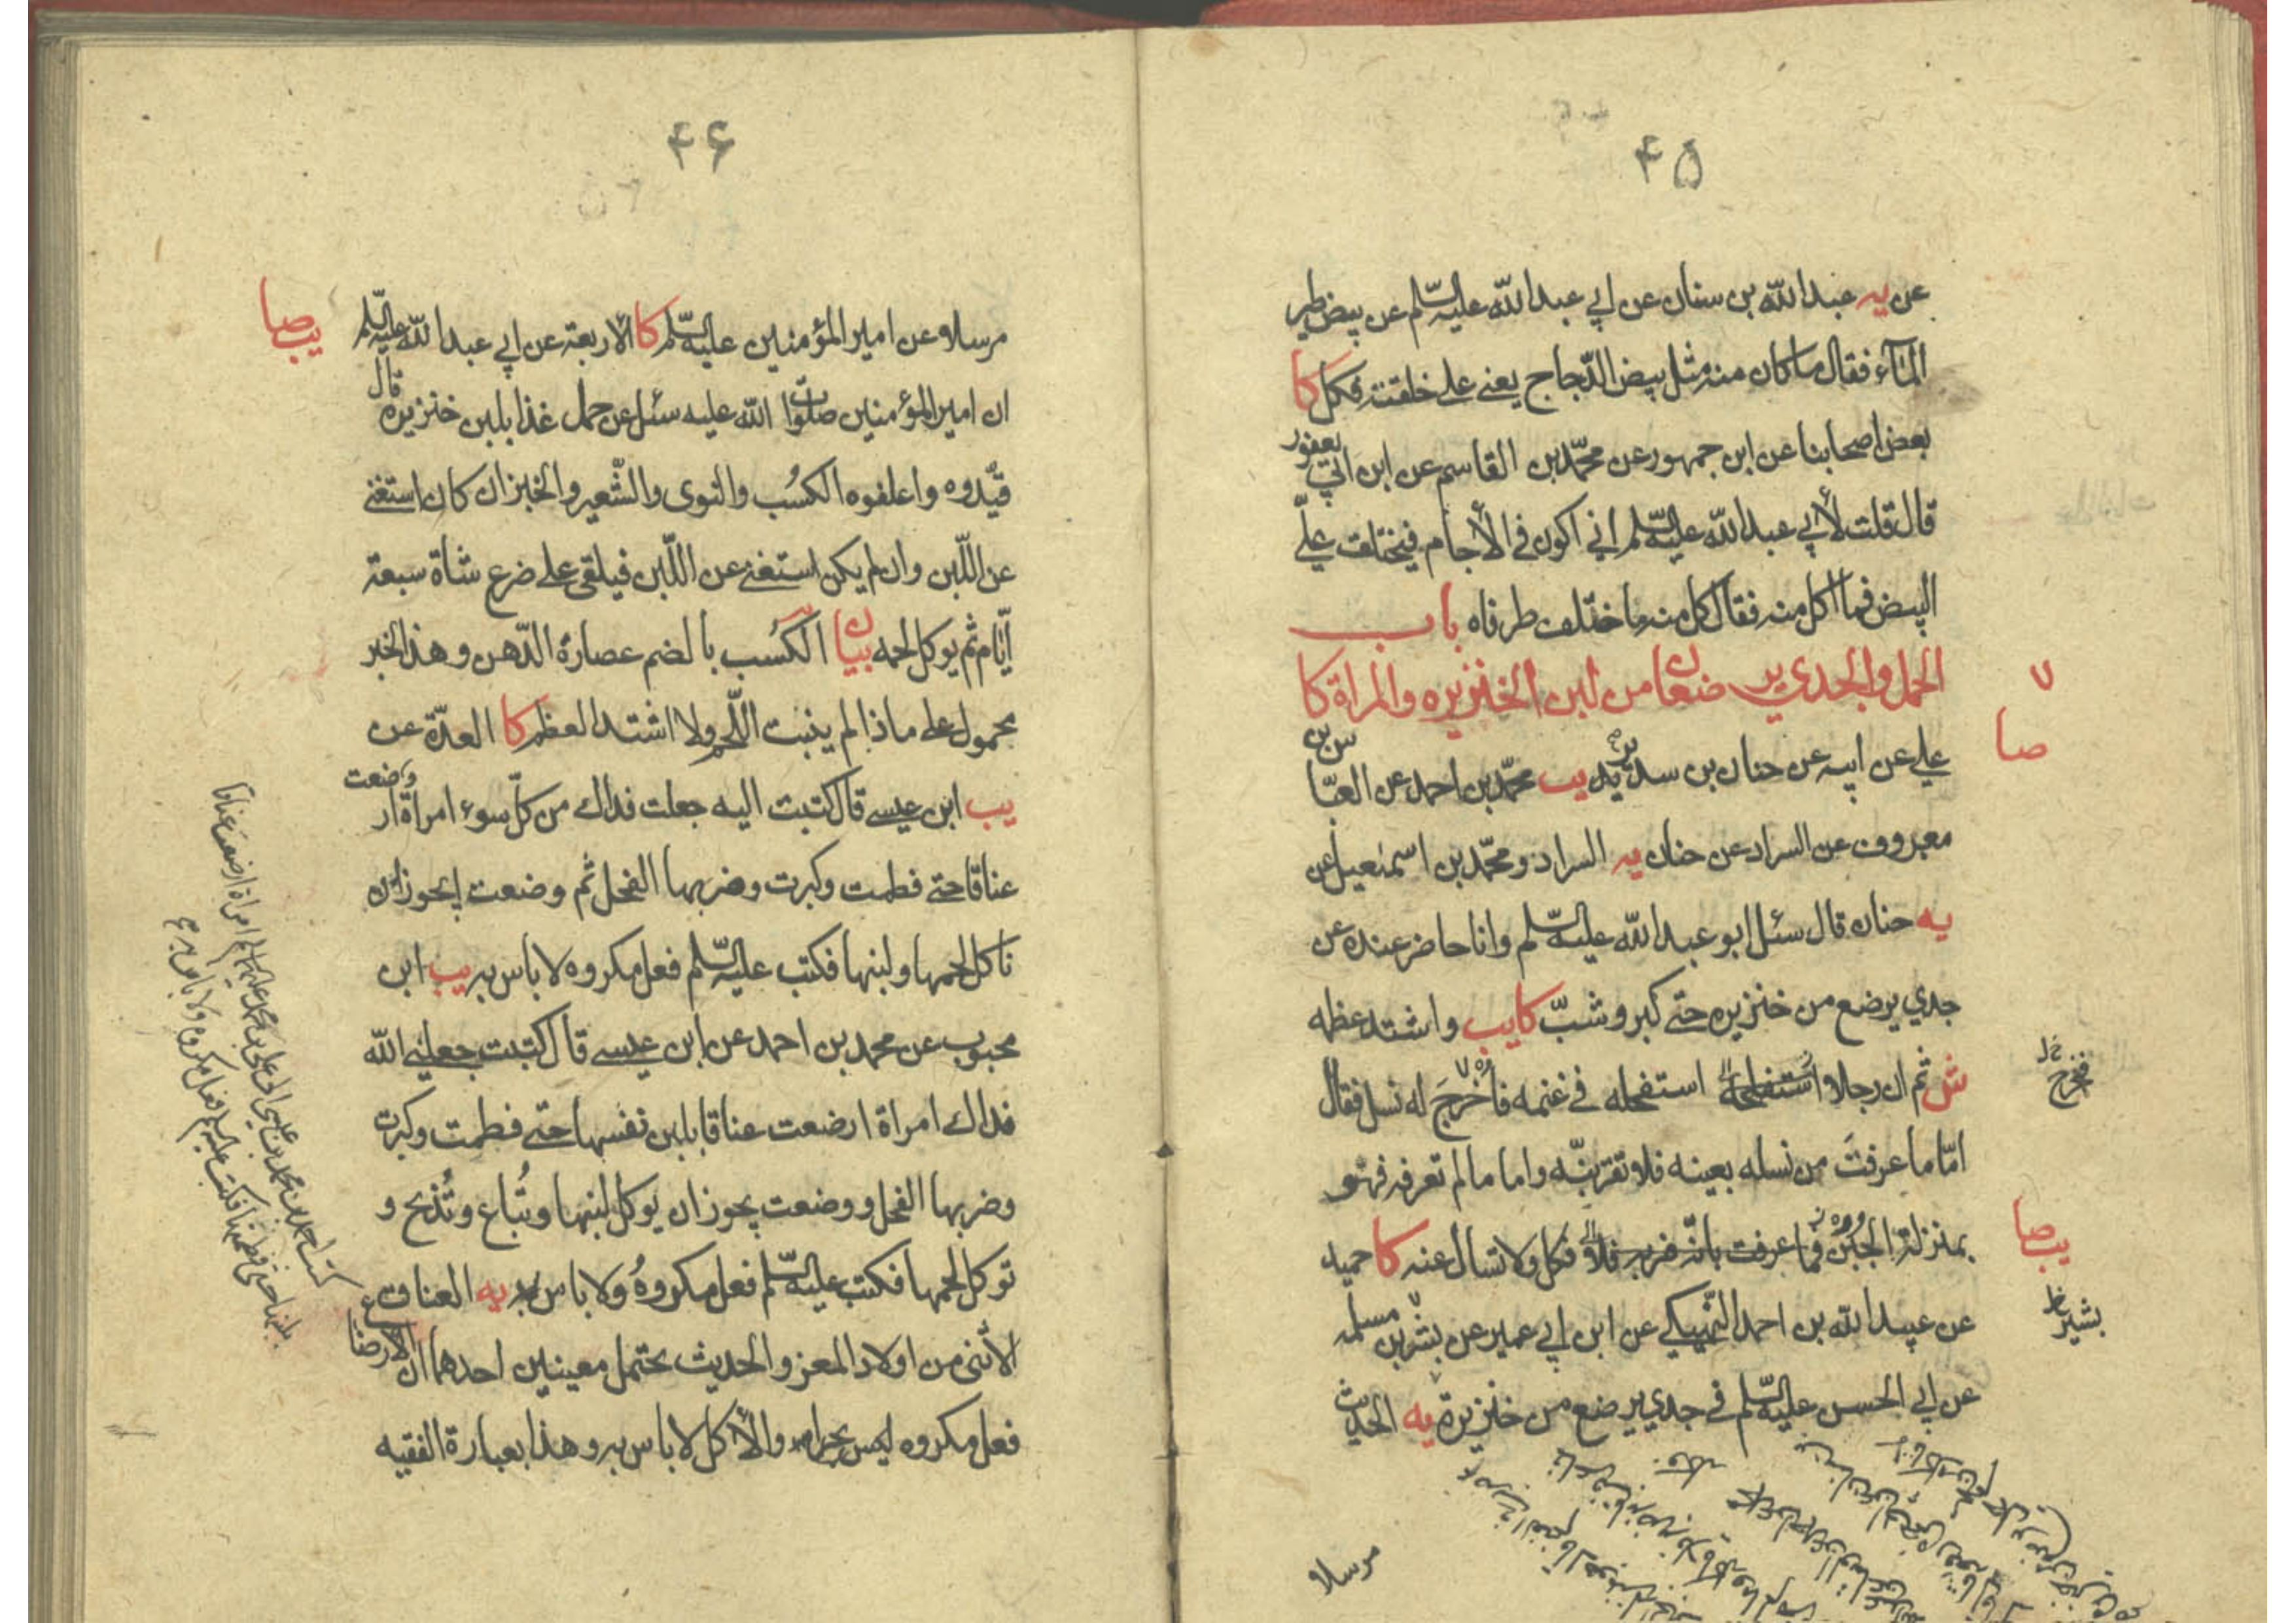 ۴۵
عن يه عبدالله بن سنان عن ابي عبدالله عليه السلم عن بيض طير
المآء فقال ما كان منه مثل بيض الدّجاج يعني على خلقته فكل كا
بعض اصحابنا عن ابن جمهور عن محمّد بن القاسم عن ابن ابي يعفور
قال قلت لأبي عبدالله عليه السلم اني اكون في الأجام فيختلف عليّ
البيض فما اكل منه فقال كل منه ما اختلف طرفاه باب
الحمل والجدي يرضعان من لبن الخنزيره والمراة كا
۷
صا
علي عن ابيه عن حنان بن سدير يب محمّد بن احمد عن العبّاس بن
معروف عن السراد عن حنان يه السراد ومحمّد بن اسمعيل عن
يه حنان قال سئل ابو عبدالله عليه السلم وانا حاضر عنده عن
جدي يرضع من خنزيره حتى كبر وشبّ كا يب واشتد عظمه
ش ثم ان رجلا استفحله في غنمه فأُخرجَ له نسل فقال
فخرج خ ل
امّا ما عرفتَ من نسله بعينه فلا تقربنّه واما ما لم تعرفه فهو
بمنزلة الجبن فما عرفت بانّه ضربه فلا فكل ولا تسال عنه كا حميد
يب صا
عن عبيدالله بن احمد النّهيكي عن ابن ابي عمير عن بشر بن مسلمه
بشير
عن ابي الحسن عليه السلم في جدي يرضع من خنزيرة يه الحديث
مرسلا
۴۶
مرسلا عن امير المؤمنين عليه السلم كا الاربعة عن ابي عبدالله عليه السلم
يب صا
ان امير المؤمنين صلوات الله عليه سئل عن حمل غذا بلبن خنزيره قال
قيّدوه واعلفوه الكسُب والنوى والشّعير والخبز ان كان استغنى
عن اللّبن وان لم يكن استغنى عن اللّبن فيلقى على ضرع شاة سبعة
أيّام ثم يوكل لحمه بيان الكُسب بالضم عصارة الدّهن وهذا الخبر
محمول على ما اذا لم ينبت اللّحم ولا اشتد العظم كا العدّة عن
يب ابن عيسى قال كتبت اليه جعلت فداك من كلّ سوء امراة ارضعت
عناقا حتى فطمت وكبرت وضربها الفحل ثم وضعت ايجوز ان
ناكل لحمها ولبنها فكتب عليه السلم فعل مكروه لا باس به يب ابن
محبوب عن محمد بن احمد عن ابن عيسى قال كتبت جعلني الله
فداك امراة ارضعت عناقا بلبن نفسها حتى فطمت وكبرت
وضربها الفحل ووضعت يجوز ان يوكل لبنها وتُباع وتُذبح و
توكل لحمها فكتب عليه السلم فعل مكروهُ ولا باس به يه العناق
الأنثى من اولاد المعز والحديث يحتمل معنيين احدهما ان الارضاع
فعل مكروه ليس بحرام والأكل لا باس به وهذا بعبارة الفقيه
كتب احمد بن محمد بن عيسى الى علي بن محمد عليهما السلم امراة ارضعت عناقا
بلبنها حتى فطمتها فكتب عليه السلم فعل مكروه ولا باس به